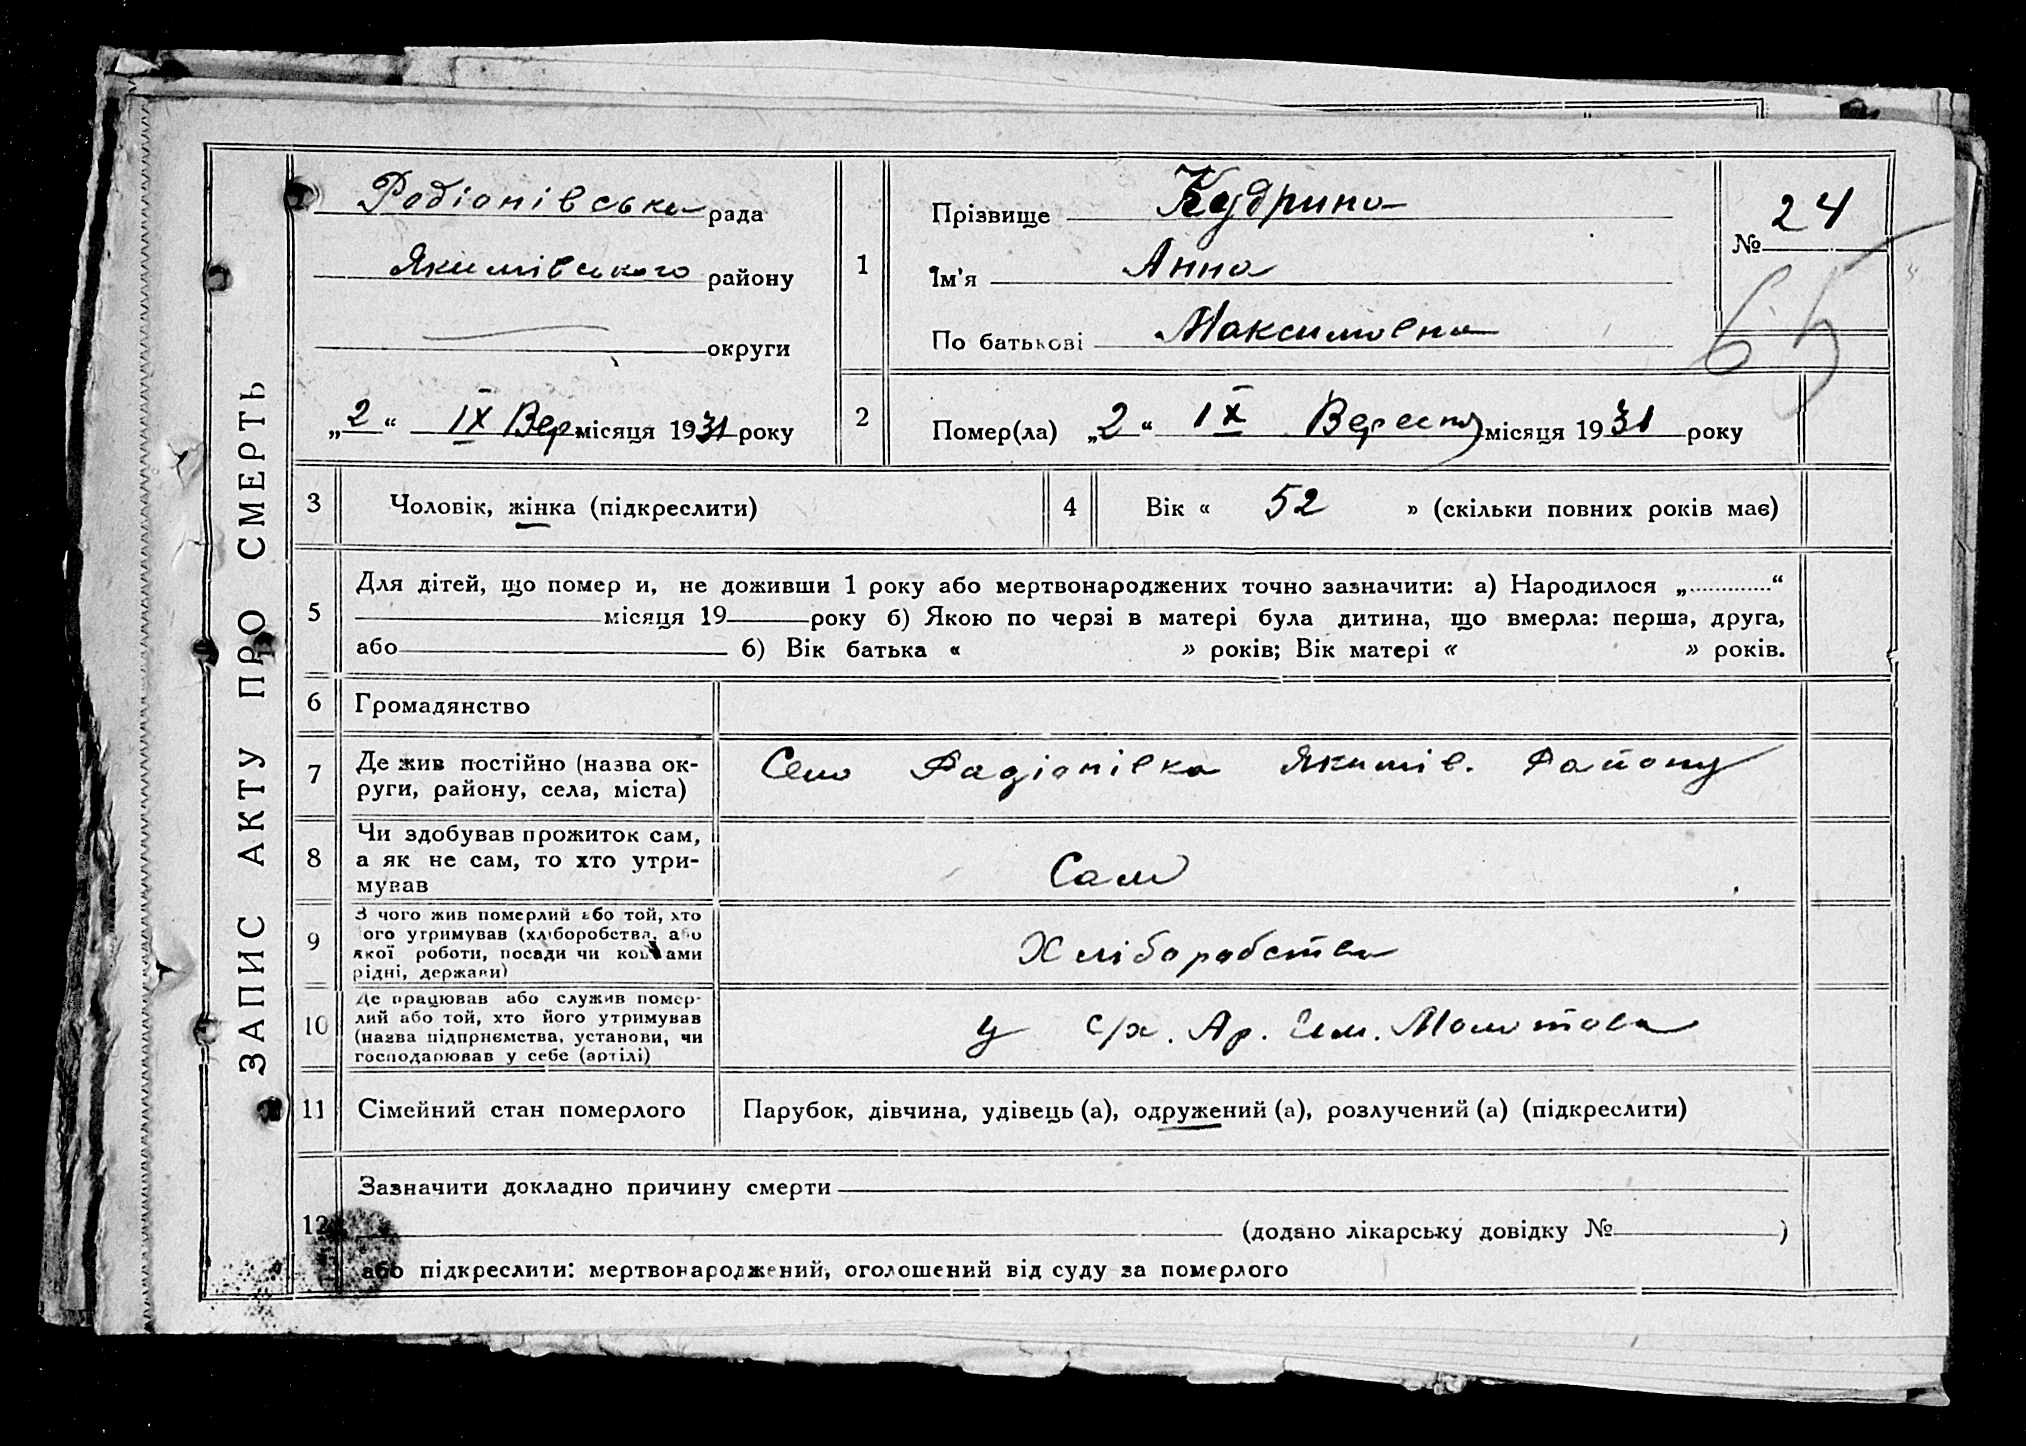 ЗАПИС АКТУ ПРО СМЕРТЬ
Родіонівська рада
Якимівського району
округи
„2“ IX Вер місяця 1931 року
1
Прізвище Кудрина
Ім'я Анна
По батькові Максимовна
№ 24
65
2
Помер(ла) „2“ IX Вересня місяця 1931 року
3 Чоловік, жінка (підкреслити)
4 Вік « 52 » (скільки повних років має)
5
Для дітей, що помер и, не доживши 1 року або мертвонароджених точно зазначити: а) Народилося „..............“
місяця 19 року б) Якою по черзі в матері була дитина, що вмерла: перша, друга,
або б) Вік батька « » років; Вік матері « » років.
6 Громадянство
7 Де жив постійно (назва ок-
руги, району, села, міста)
Село Радіонівка Якимів. Району
8 Чи здобував прожиток сам,
а як не сам, то хто утри-
мував
Сам
9 З чого жив померлий або той, хто
ого утримував (хліборобства, або
якої роботи, посади чи коштами
рідні, держави)
Хліборобства
10 Де працював або служив помер-
лий або той, хто його утримував
(назва підприємства, установи, чи
господарював у себе (артілі)
у с/х. Ар. Им. Молотова
11 Сімейний стан померлого
Парубок, дівчина, удівець (а), одружений (а), розлучений (а) (підкреслити)
12
Зазначити докладно причину смерти
(додано лікарську довідку № )
або підкреслити: мертвонароджений, оголошений від суду за померлого